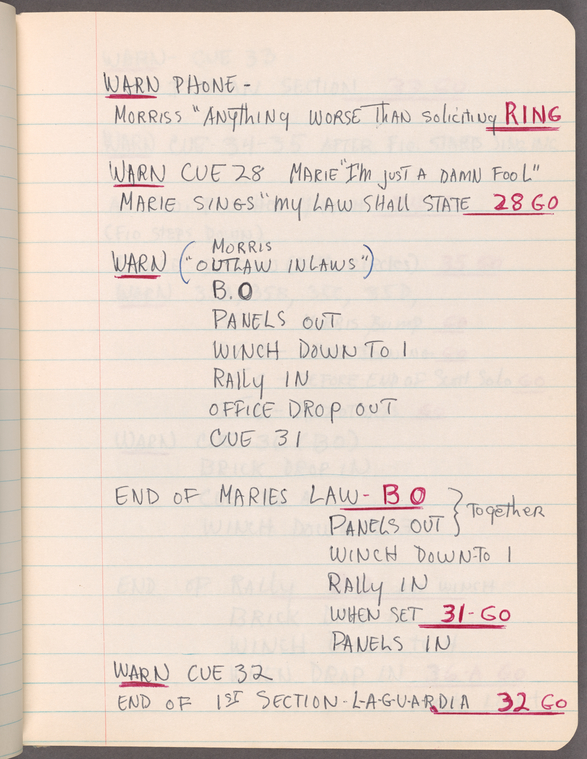 WARN PHONE -
MORRISS "ANYTHING WORSE THAN SOLICITING RING
WARN CUE 28 MARIE "I'M JUST A DAMN FOOL"
MARIE SINGS "MY LAW SHALL STATE 28 GO
MORRIS
WARN ("OUTLAW INLAWS")
B.O
PANELS OUT
WINCH DOWN TO 1
RALLY IN
OFFICE DROP OUT
CUE 31
END OF MARIES LAW - B O
PANELS OUT } Together
WINCH DOWN TO 1
RALLY IN
WHEN SET 31-GO
PANELS IN
WARN CUE 32
END OF 1ST SECTION - L-A-G-U-A-R-DIA 32 GO